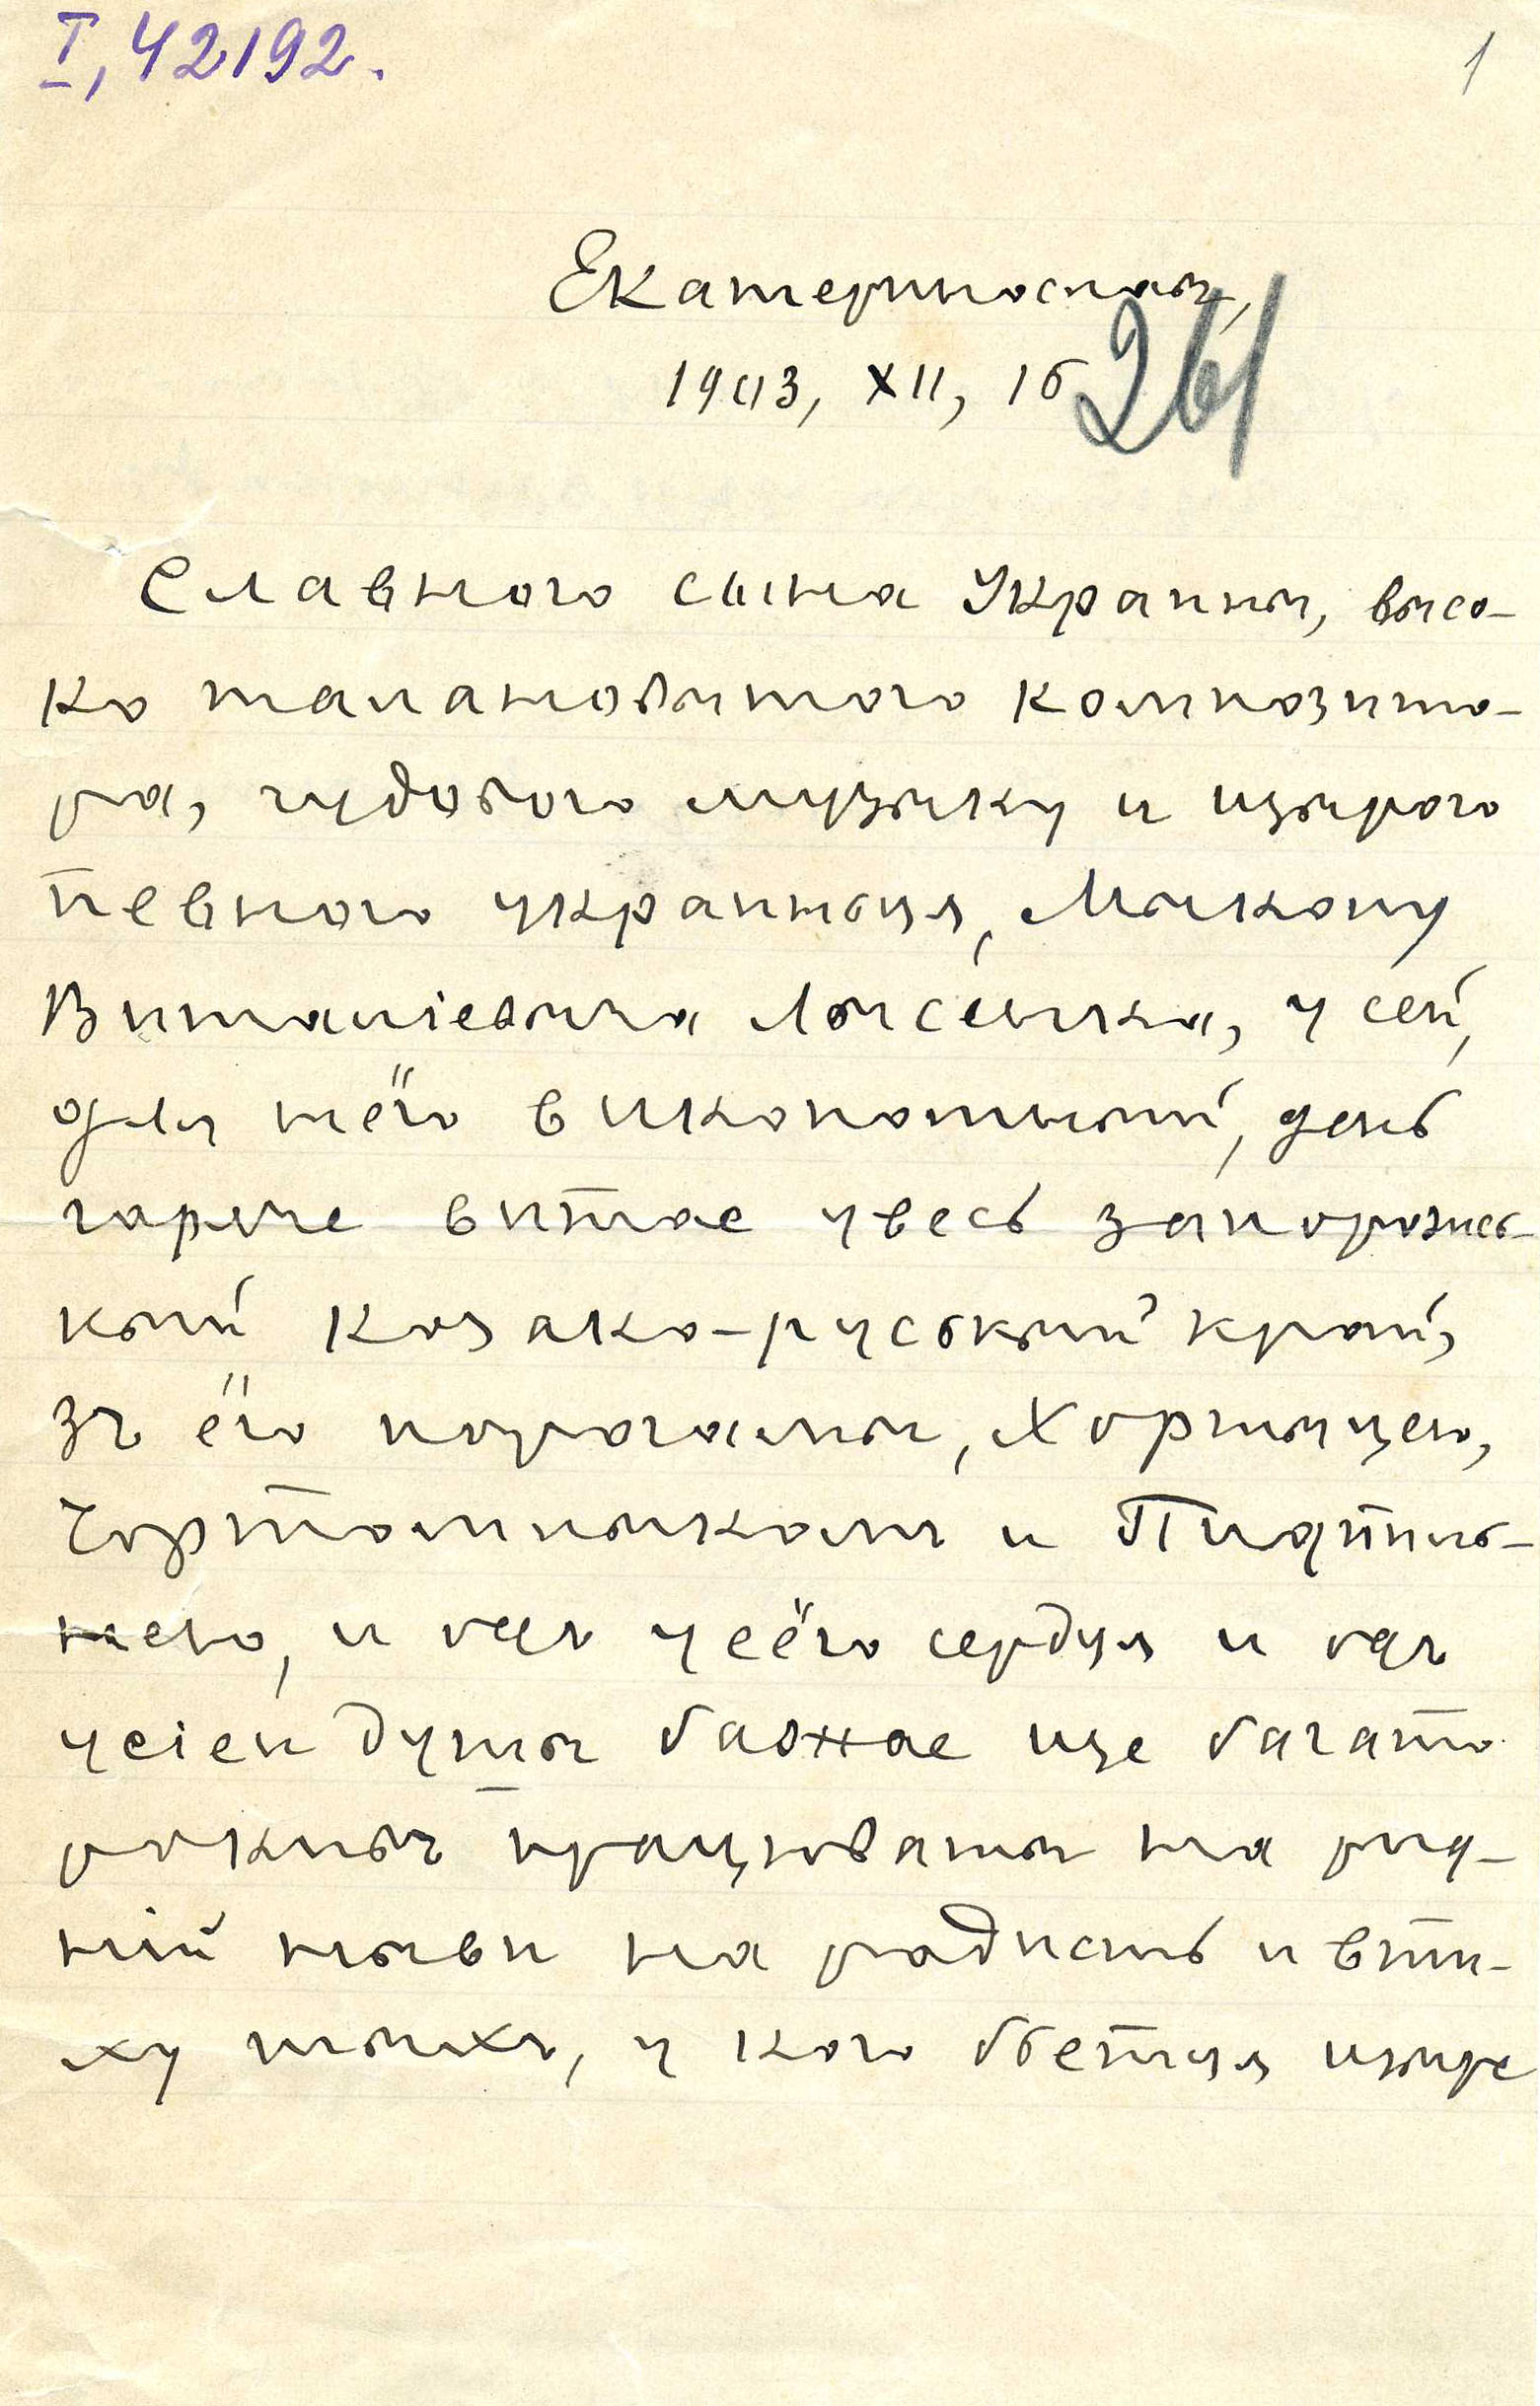 I, 42192.
1
Екатеринослав,
1903, XII, 16
261
Славного сына Украины, высо-
ко талановытого композито-
ра, чудового музыку и щырого
певного украинця, Мыколу
Виталіевыча Лысенка, у сей,
для нёго викопомный, день
гаряче витае увесь запорожсь-
кый козако-руськый край,
зъ ёго порогамы, Хортыцею,
Чортомлыкомъ и Пидпиль-
нею, и одъ усёго сердця и одъ
усіеи души бажае ще багато
рокивъ працюваты на рид-
ній ныви на радисть и вти-
ху тыхъ, у кого бьетця щыре